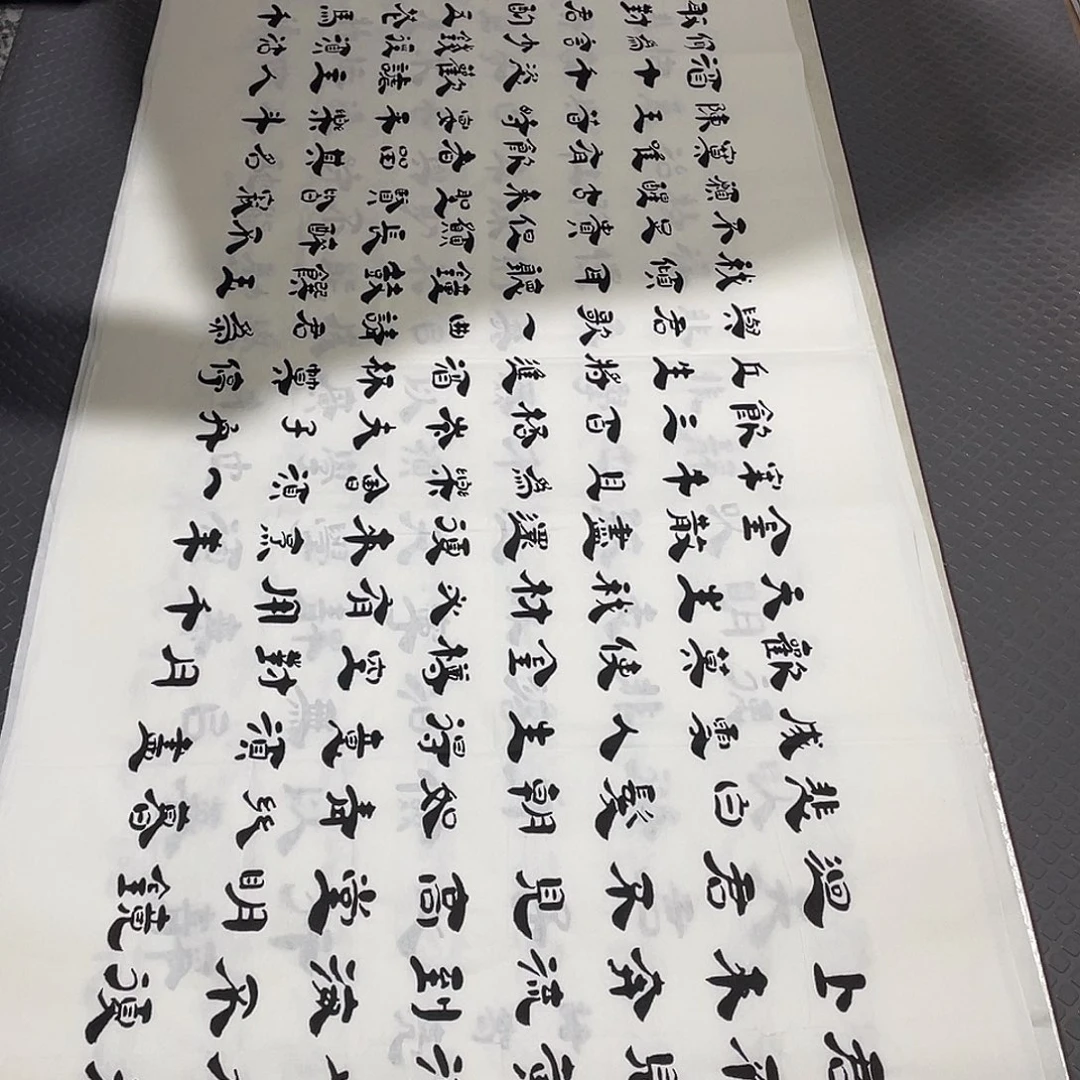 君不見黃河之水天
上來奔流到海不復
迴君不見高堂明鏡
悲白髮朝如青絲暮
成雪人生得意須盡
歡莫使金樽空對月
天生我材必有用千
金散盡還復來烹羊
宰牛且為樂會須一
飲三百杯岑夫子丹
丘生將進酒杯莫停
與君歌一曲請君為
我傾耳聽鐘鼓饌玉
不足貴但願長醉不
願醒古來聖賢皆寂
寞唯有飲者留其名
陳王昔時宴平樂斗
酒十千恣歡謔主人
何為言少錢徑須沽
取對君酌五花馬千